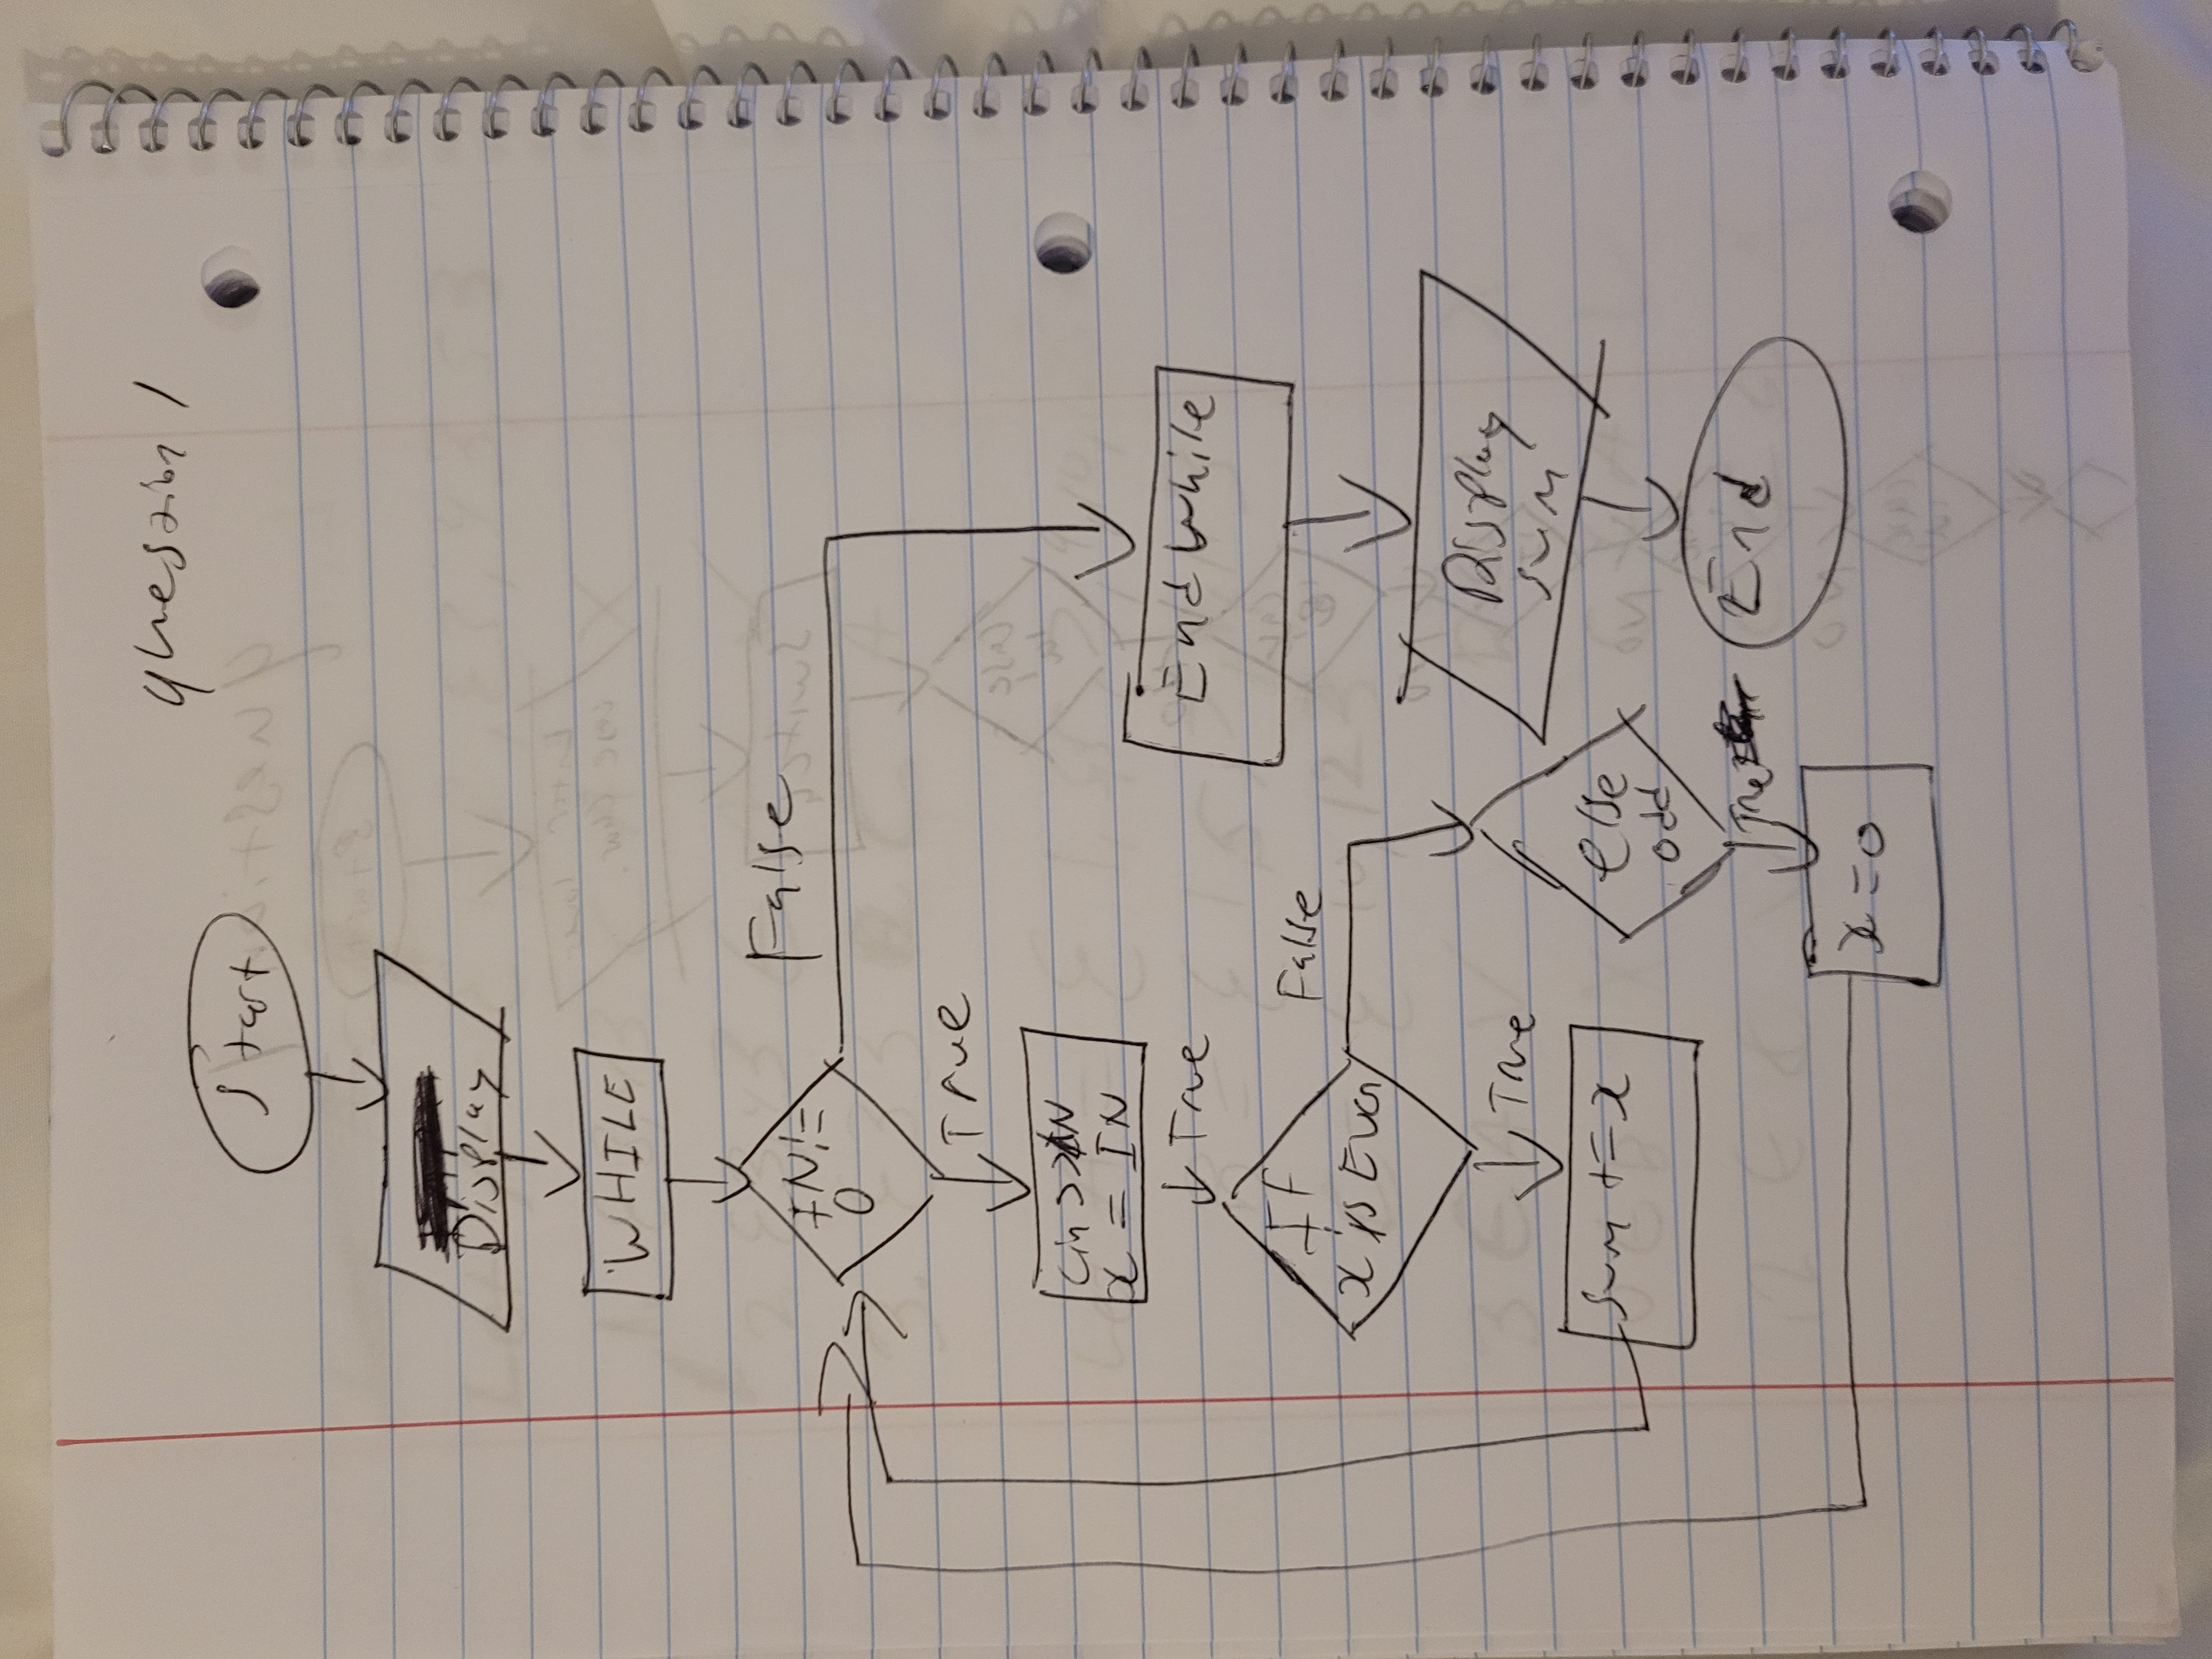 question 1
Start
Display
WHILE
IN !=
0
False
True
cin >> IN
x = IN
True
If
x is Even
False
True
sum += x
else
odd
True
x = 0
End while
Display
sum
End